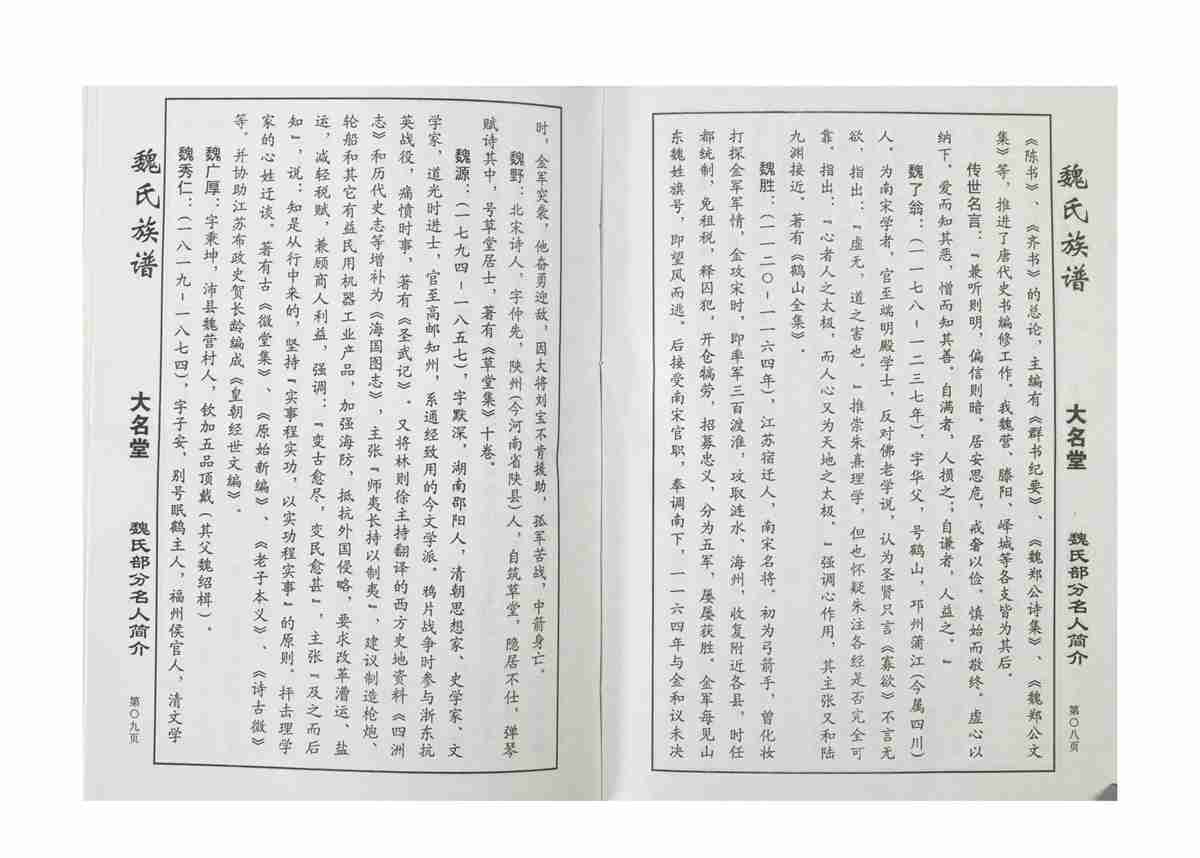 魏氏族谱
大名堂
魏氏部分名人简介
第〇八页
《陈书》、《齐书》的总论，主编有《群书纪要》、《魏郑公诗集》、《魏郑公文
集》等，推进了唐代史书编修工作。我魏营、滕阳、峄城等各支皆为其后。
传世名言：“兼听则明，偏信则暗。居安思危，戒奢以俭。慎始而敬终。虚心以
纳下。爱而知其恶，憎而知其善。自满者，人损之；自谦者，人益之。”
魏了翁：（一一七八－一二三七年），字华父，号鹤山，邛州蒲江（今属四川）
人。为南宋学者，官至端明殿学士，反对佛老学说，认为圣贤只言《寡欲》不言无
欲，指出：“虚无，道之害也。”推崇朱熹理学，但也怀疑朱注各经是否完全可
靠。指出：“心者人之太极，而人心又为天地之太极。”强调心作用，其主张又和陆
九渊接近。著有《鹤山全集》。
魏胜：（一一二〇－一一六四年），江苏宿迁人，南宋名将。初为弓箭手，曾化妆
打探金军军情，金攻宋时，即率军三百渡淮，攻取涟水、海州，收复附近各县，时任
都统制，免租税，释囚犯，开仓犒劳，招募忠义，分为五军，屡屡获胜。金军每见山
东魏姓旗号，即望风而逃。后接受南宋官职，奉调南下，一一六四年与金和议未决
时，金军突袭，他奋勇迎敌，因大将刘宝不肯援助，孤军苦战，中箭身亡。
魏野：北宋诗人，字仲先，陕州（今河南省陕县）人，自筑草堂，隐居不仕，弹琴
赋诗其中，号草堂居士，著有《草堂集》十卷。
魏源：（一七九四－一八五七），字默深，湖南邵阳人，清朝思想家、史学家、文
学家，道光时进士，官至高邮知州，系通经致用的今文学派。鸦片战争时参与浙东抗
英战役，痛愤时事，著有《圣武记》。又将林则徐主持翻译的西方史地资料《四洲
志》和历代史志等增补为《海国图志》，主张“师夷长持以制夷”，建议制造枪炮、
轮船和其它有益民用机器工业产品，加强海防，抵抗外国侵略，要求改革漕运、盐
运，减轻税赋，兼顾商人利益，强调：“变古愈尽，变民愈甚”，主张“及之而后
知”，说：知是从行中来的，坚持“实事程实功，以实功程实事”的原则。抨击理学
家的心姓迂谈。著有古《微堂集》、《原始新编》、《老子本义》、《诗古微》
等。并协助江苏布政史贺长龄编成《皇朝经世文编》。
魏广厚：字秉坤，沛县魏营村人，钦加五品顶戴（其父魏绍楫）。
魏秀仁：（一八一九－一八七四），字子安、别号眠鹤主人，福州侯官人，清文学
魏氏族谱
大名堂
魏氏部分名人简介
第〇九页